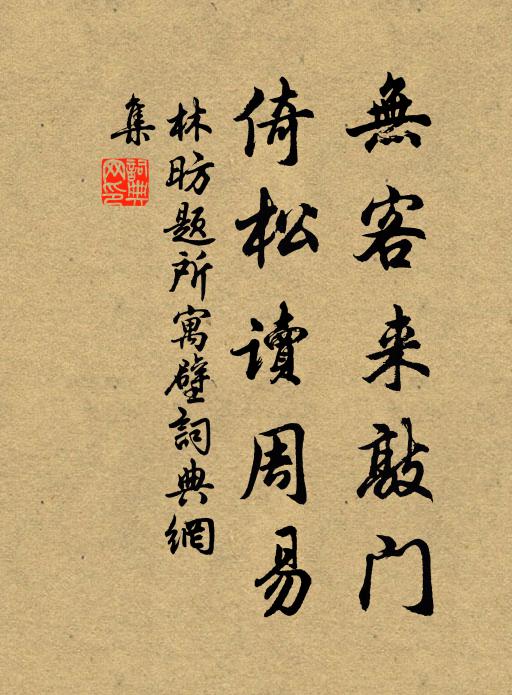 無客来敲门
倚松讀周易
林昉题所寓壁詞典網
集
詞典网印